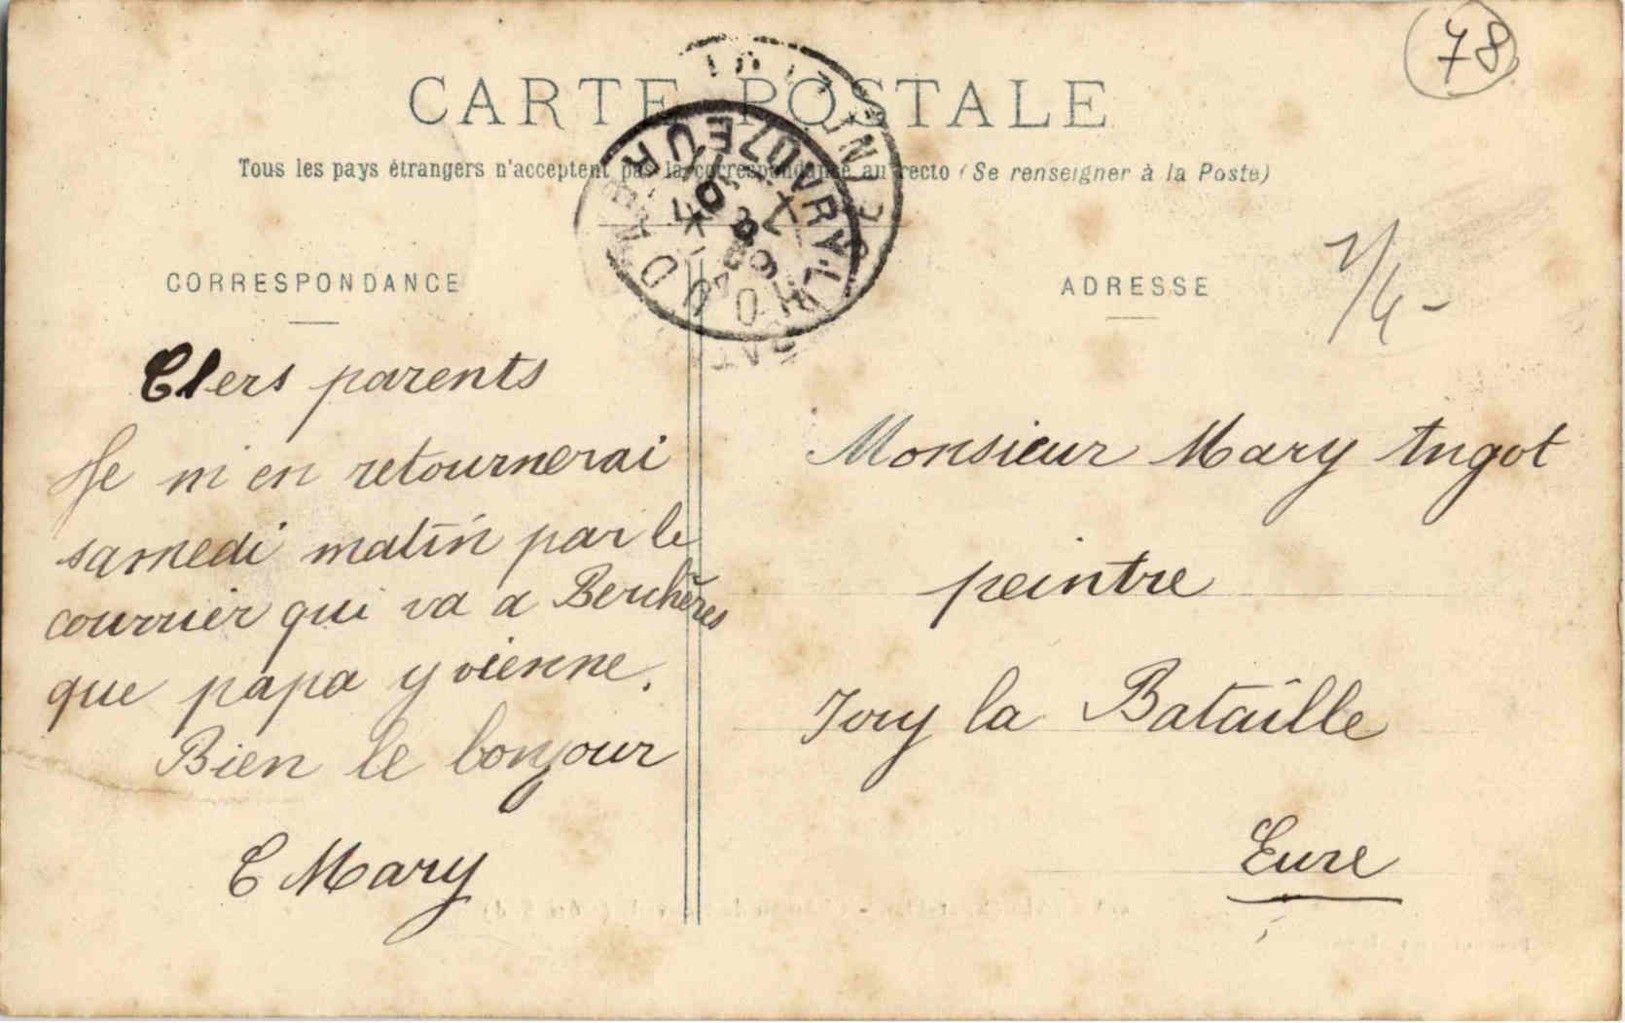 78
CARTE POSTALE
Tous les pays étrangers n'acceptent pas la correspondance au recto (Se renseigner à la Poste)
CORRESPONDANCE
Chers parents
Je m'en retournerai
samedi matin par le
courrier qui va a Berchères
que papa y vienne.
Bien le bonjour
C Mary
ADRESSE
Monsieur Mary Angot
peintre
Ivry la Bataille
Eure